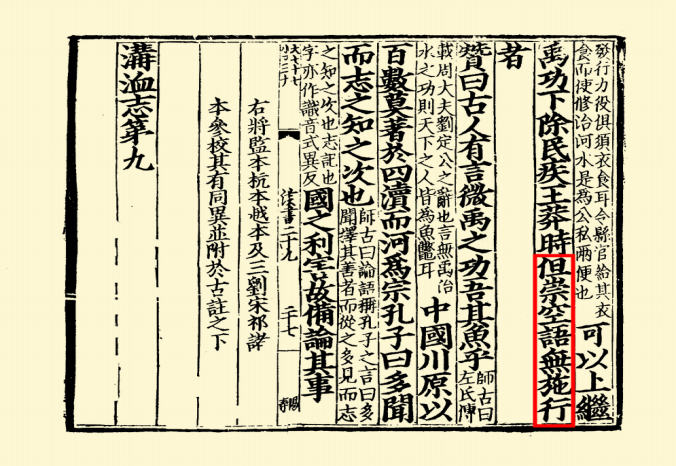 發行力役俱須衣食耳令縣官給其衣
食而使修治河水是爲公私兩便也
可以上繼
禹功下除民疾王莽時但崇空語無施行
者
贊曰古人有言微禹之功吾其魚乎
師古曰
左氏傳
載周大夫劉定公之辭也言無禹治
水之功則天下之人皆爲魚鼈耳
中國川原以
百數莫著於四瀆而河爲宗孔子曰多聞
而志之知之次也
師古曰論語稱孔子之言曰多
聞擇其善者而從之多見而志
之知之次也志記也
字亦作識音式異反
國之利害故備論其事
二十九
二十七
右將監本杭本越本及三劉宋祁諸
本參校其有同異並附於古註之下
溝洫志第九